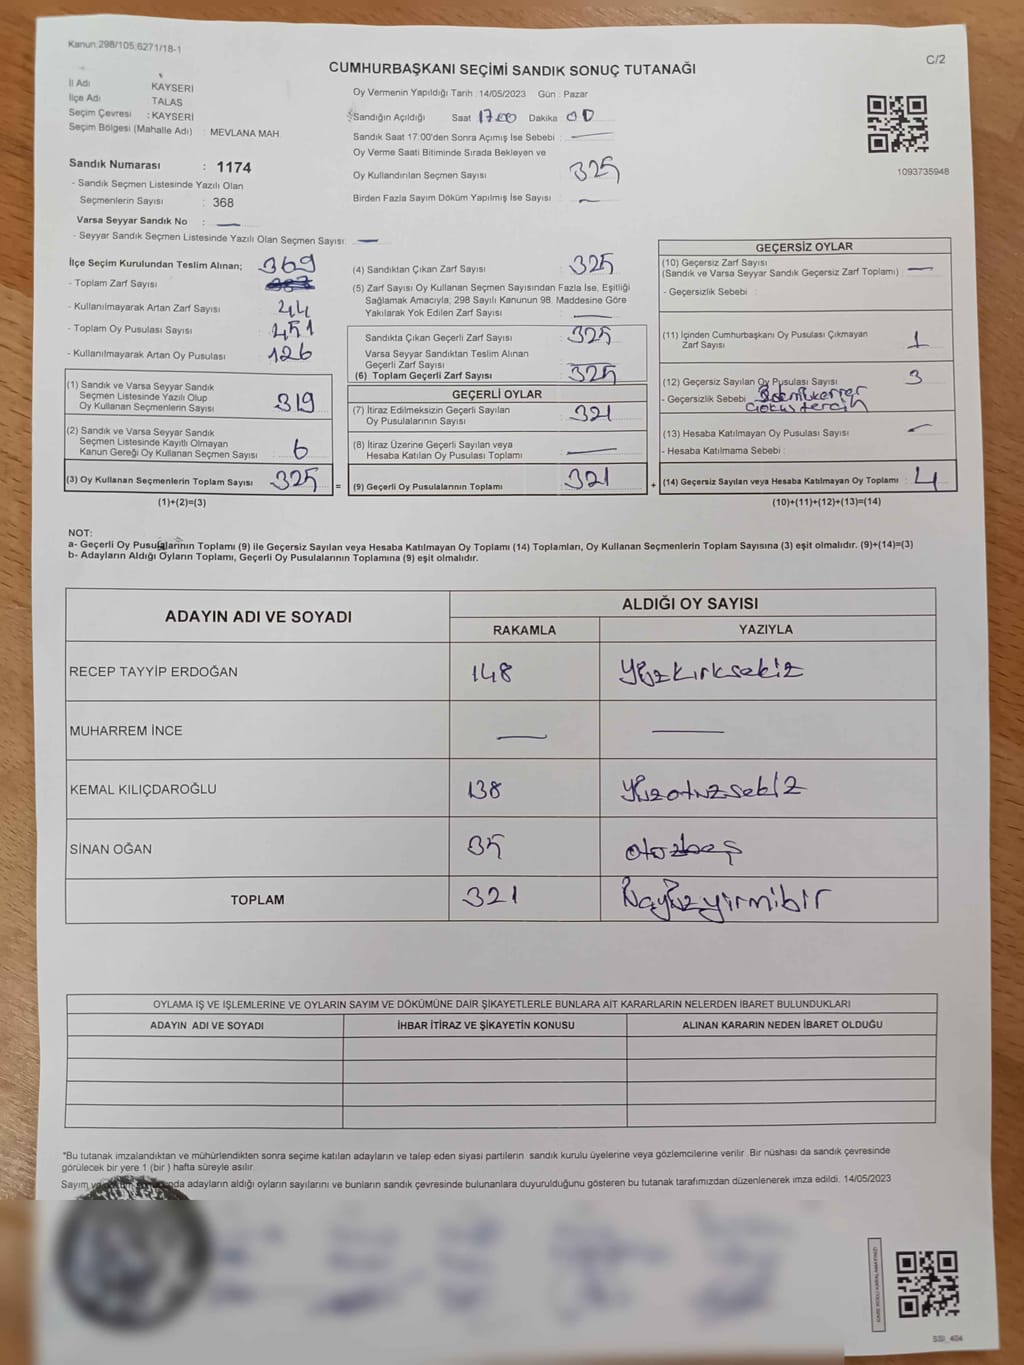 Kanun:298/105;6271/18-1
C/2
CUMHURBAŞKANI SEÇİMİ SANDIK SONUÇ TUTANAĞI
İl Adı KAYSERİ
İlçe Adı TALAS
Seçim Çevresi : KAYSERİ
Seçim Bölgesi (Mahalle Adı) : MEVLANA MAH.
Sandık Numarası : 1174
- Sandık Seçmen Listesinde Yazılı Olan
Seçmenlerin Sayısı : 368
Varsa Seyyar Sandık No : —
- Seyyar Sandık Seçmen Listesinde Yazılı Olan Seçmen Sayısı: —
Oy Vermenin Yapıldığı Tarih : 14/05/2023 Gün : Pazar
Sandığın Açıldığı Saat 17.00 Dakika 00
Sandık Saat 17:00'den Sonra Açımış İse Sebebi : —
Oy Verme Saati Bitiminde Sırada Bekleyen ve
Oy Kullandırılan Seçmen Sayısı 325
Birden Fazla Sayım Döküm Yapılmış İse Sayısı : —
1093735948
İlçe Seçim Kurulundan Teslim Alınan; 369
- Toplam Zarf Sayısı
- Kullanılmayarak Artan Zarf Sayısı 44
- Toplam Oy Pusulası Sayısı 451
- Kullanılmayarak Artan Oy Pusulası 126
(1) Sandık ve Varsa Seyyar Sandık
Seçmen Listesinde Yazılı Olup
Oy Kullanan Seçmenlerin Sayısı 319
(2) Sandık ve Varsa Seyyar Sandık
Seçmen Listesinde Kayıtlı Olmayan
Kanun Gereği Oy Kullanan Seçmen Sayısı 6
(3) Oy Kullanan Seçmenlerin Toplam Sayısı 325 =
(1)+(2)=(3)
(4) Sandıktan Çıkan Zarf Sayısı 325
(5) Zarf Sayısı Oy Kullanan Seçmen Sayısından Fazla İse, Eşitliği
Sağlamak Amacıyla; 298 Sayılı Kanunun 98. Maddesine Göre
Yakılarak Yok Edilen Zarf Sayısı : —
Sandıkta Çıkan Geçerli Zarf Sayısı : 325
Varsa Seyyar Sandıktan Teslim Alınan
Geçerli Zarf Sayısı
(6) Toplam Geçerli Zarf Sayısı 325
GEÇERLİ OYLAR
(7) İtiraz Edilmeksizin Geçerli Sayılan
Oy Pusulalarının Sayısı : 321
(8) İtiraz Üzerine Geçerli Sayılan veya
Hesaba Katılan Oy Pusulası Toplamı —
(9) Geçerli Oy Pusulalarının Toplamı 321 +
GEÇERSİZ OYLAR
(10) Geçersiz Zarf Sayısı
(Sandık ve Varsa Seyyar Sandık Geçersiz Zarf Toplamı) —
- Geçersizlik Sebebi :
(11) İçinden Cumhurbaşkanı Oy Pusulası Çıkmayan
Zarf Sayısı 1
(12) Geçersiz Sayılan Oy Pusulası Sayısı 3
- Geçersizlik Sebebi
(13) Hesaba Katılmayan Oy Pusulası Sayısı —
- Hesaba Katılmama Sebebi :
(14) Geçersiz Sayılan veya Hesaba Katılmayan Oy Toplamı 4
(10)+(11)+(12)+(13)=(14)
NOT:
a- Geçerli Oy Pusulalarının Toplamı (9) ile Geçersiz Sayılan veya Hesaba Katılmayan Oy Toplamı (14) Toplamları, Oy Kullanan Seçmenlerin Toplam Sayısına (3) eşit olmalıdır. (9)+(14)=(3)
b- Adayların Aldığı Oyların Toplamı, Geçerli Oy Pusulalarının Toplamına (9) eşit olmalıdır.
ADAYIN ADI VE SOYADI ALDIĞI OY SAYISI
RAKAMLA YAZIYLA
RECEP TAYYİP ERDOĞAN 148 Yüzkırksekiz
MUHARREM İNCE — —
KEMAL KILIÇDAROĞLU 138 Yüzotuzsekiz
SİNAN OĞAN 35 otuzbeş
TOPLAM 321 Üçyüzyirmibir
OYLAMA İŞ VE İŞLEMLERİNE VE OYLARIN SAYIM VE DÖKÜMÜNE DAİR ŞİKAYETLERLE BUNLARA AİT KARARLARIN NELERDEN İBARET BULUNDUKLARI
ADAYIN ADI VE SOYADI İHBAR İTİRAZ VE ŞİKAYETİN KONUSU ALINAN KARARIN NEDEN İBARET OLDUĞU
*Bu tutanak imzalandıktan ve mühürlendikten sonra seçime katılan adayların ve talep eden siyasi partilerin sandık kurulu üyelerine veya gözlemcilerine verilir. Bir nüshası da sandık çevresinde
görülecek bir yere 1 (bir) hafta süreyle asılır.
Sayım ve adayların aldığı oyların sayılarını ve bunların sandık çevresinde bulunanlara duyurulduğunu gösteren bu tutanak tarafımızdan düzenlenerek imza edildi. 14/05/2023